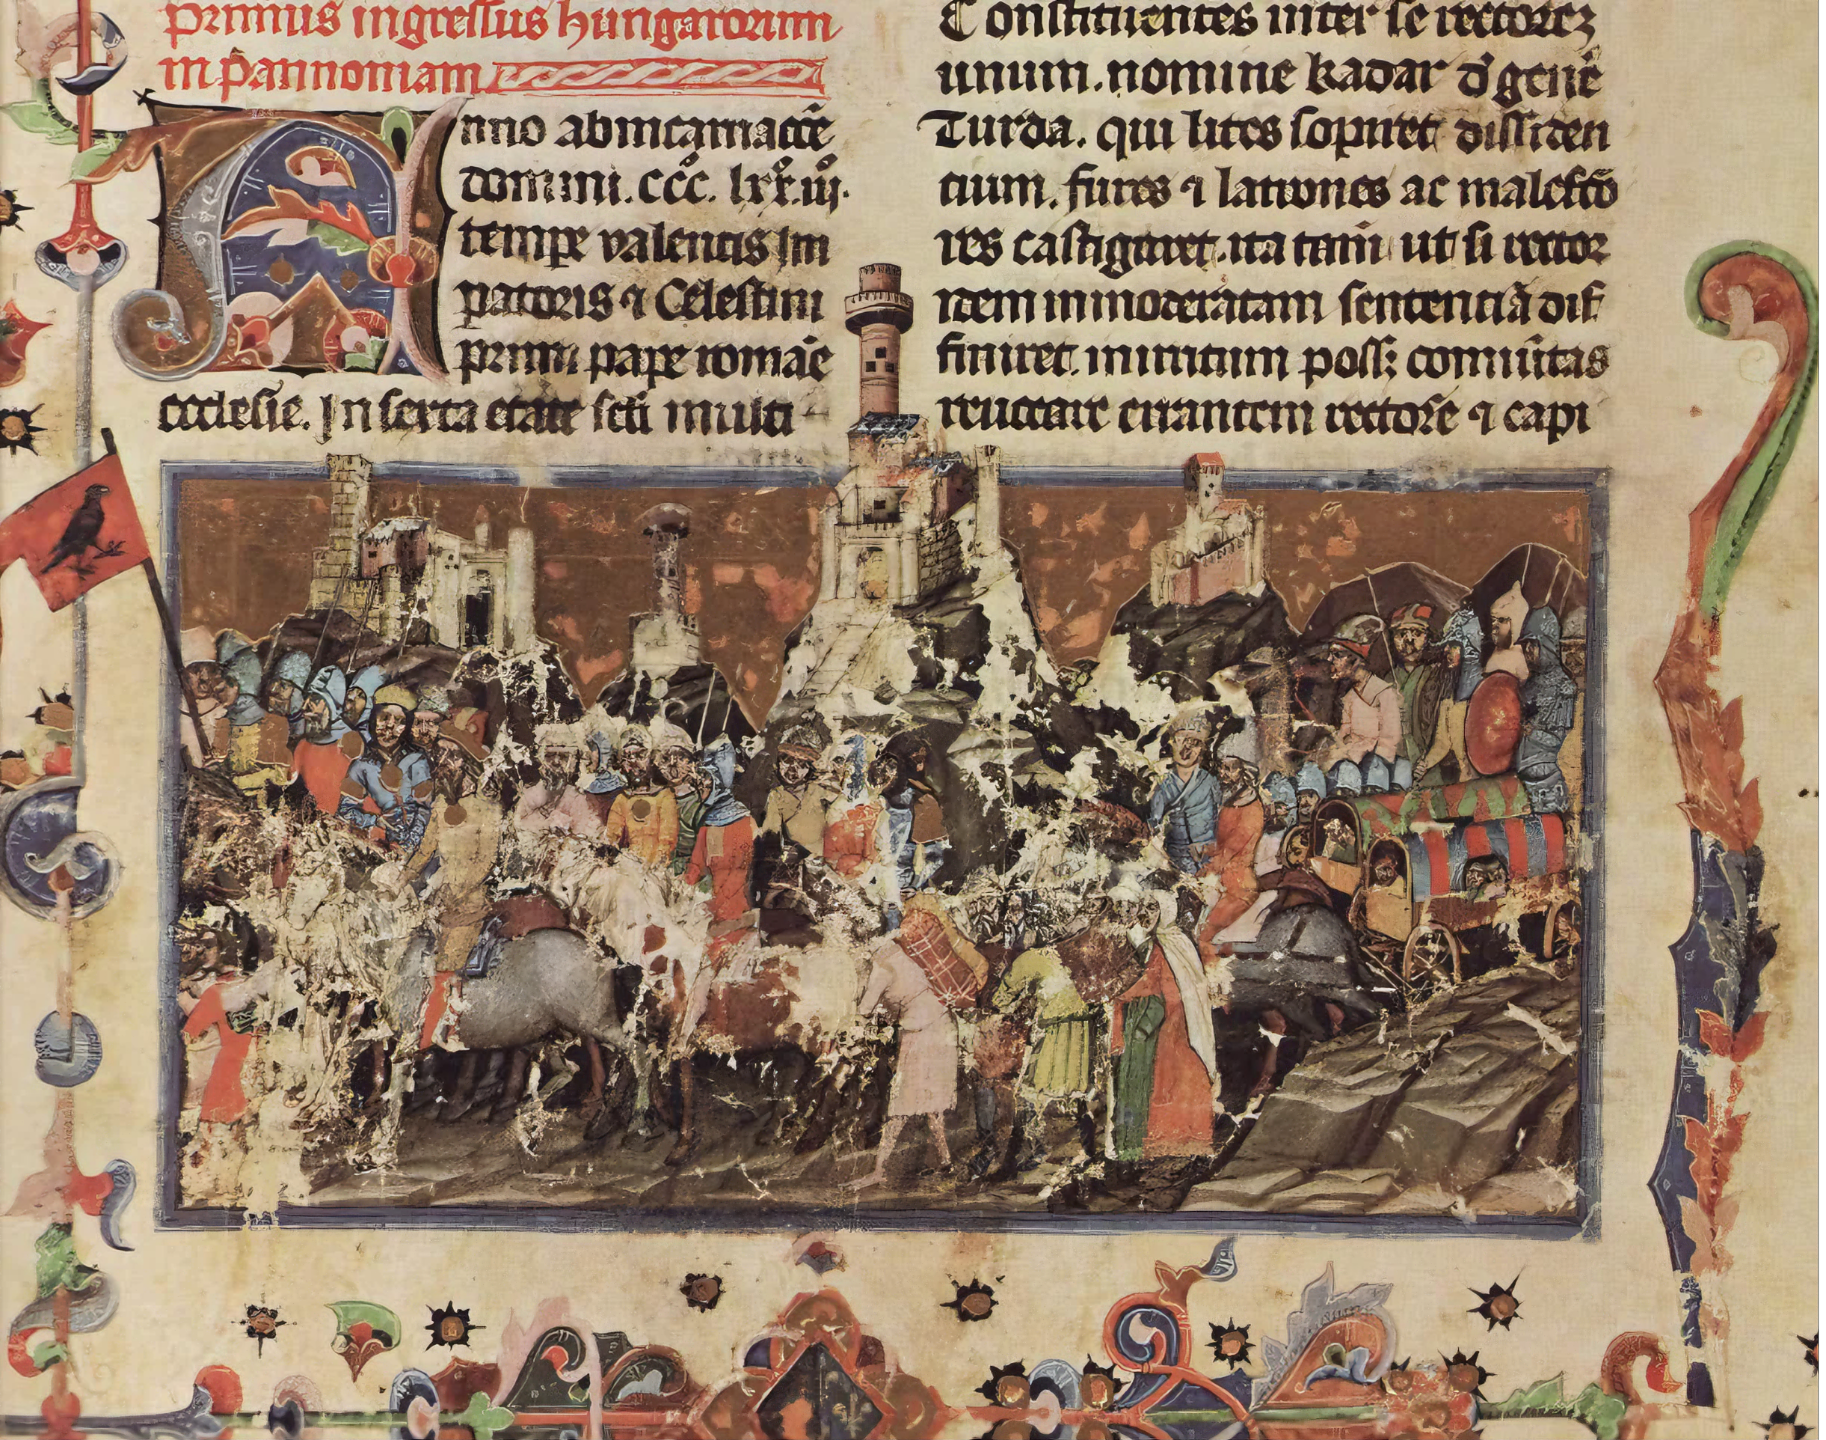 Primus ingressus hungarorum
in pannoniam
Anno ab incarnacõe
domini. ccc̊. lxx̊. iij̊.
tempe valentis Im
patoris ⁊ Celestini
primi pape romãe
ecclesie. In sexta etate scľi multi
Constituentes inter se rectorem
unum. nomine kadar d̓ genẽ
Turda. qui lites sopiret dissiden
cium. fures ⁊ latrones ac malefco
res castigaret. ita tam̃ ut si rector
idem inmoderatam sentenciã dif
finiret. inirritum possꝫ comũitas
reuocare errantem rectore ⁊ capi